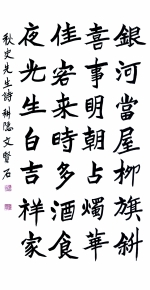 銀河當屋柳旗斜
喜事明朝占燭華
佳客來時多酒食
夜光生白吉祥家
秋史先生詩 文賢石